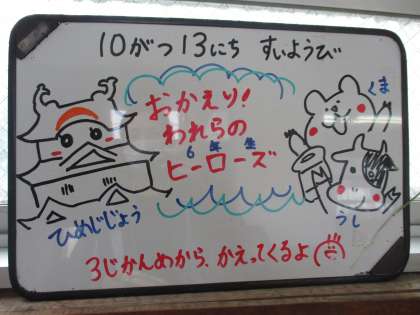 10がつ13にち すいようび
おかえり!
われらの
6年生
ヒーローズ
くま
うし
ひめじじょう
3じかんめから、かえってくるよ